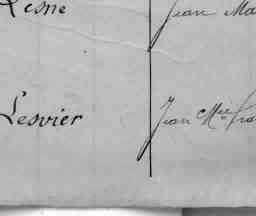 Lesne Jean Ma
Lesvier Jean Mie fra